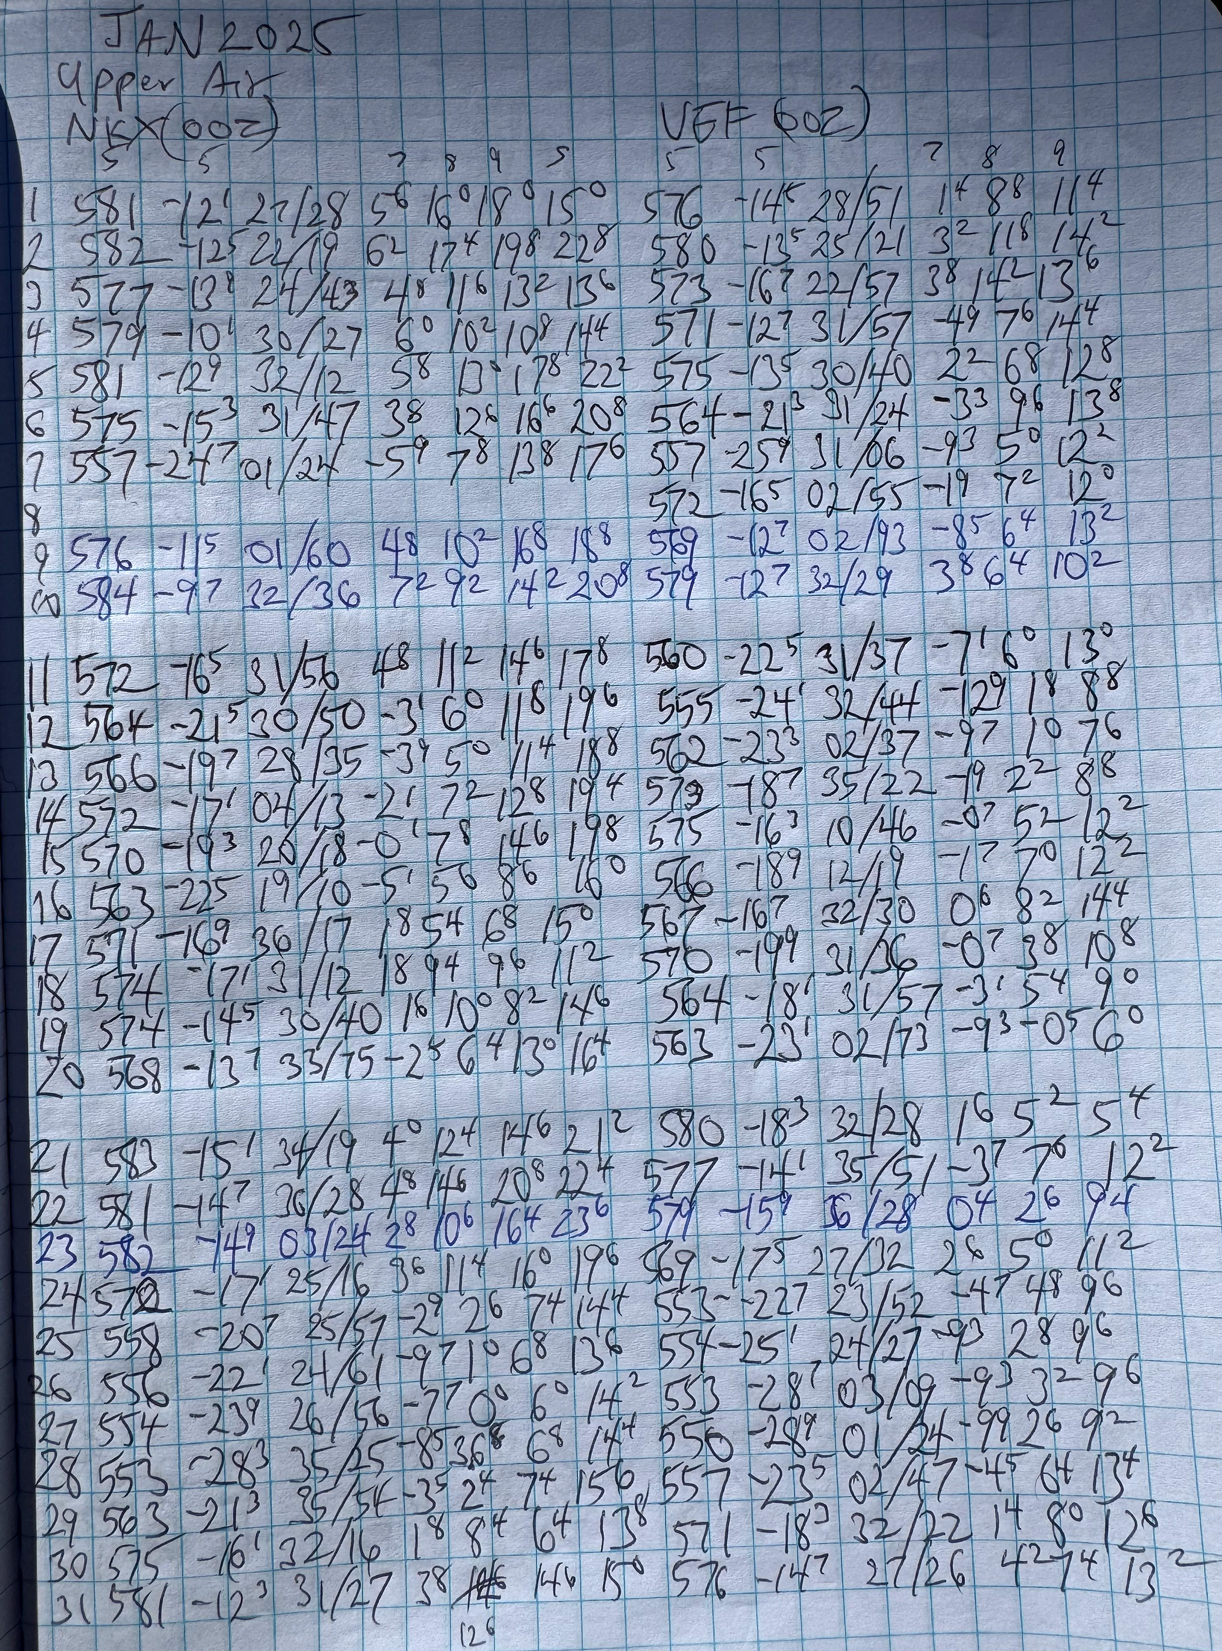 JAN 2025
Upper Air
NKX(00Z) VEF (00Z)
5 5 7 8 9 5 5 5 7 8 9
1 581 -12¹ 27/28 5⁶ 16⁰ 18⁰ 15⁰ 576 -14⁵ 28/51 1⁴ 8⁸ 11⁴
2 582 -12⁵ 22/19 6² 17⁴ 19⁸ 22⁸ 580 -13⁵ 25/21 3² 11⁸ 14²
3 577 -13⁹ 24/43 4⁸ 11⁶ 13² 13⁶ 573 -16⁷ 22/57 3⁸ 14² 13⁶
4 579 -10¹ 30/27 6⁰ 10² 10⁸ 14⁴ 571 -12⁷ 31/57 -4⁹ 7⁶ 14⁴
5 581 -12⁹ 32/12 5⁸ 13⁰ 17⁸ 22² 575 -13⁵ 30/40 2² 6⁸ 12⁸
6 575 -15³ 31/47 3⁸ 12⁶ 16⁶ 20⁸ 564 -21³ 31/24 -3³ 9⁶ 13⁸
7 557 -24⁷ 01/24 -5⁹ 7⁸ 13⁸ 17⁶ 557 -25⁹ 31/06 -9³ 5⁰ 12²
8 572 -16⁵ 02/55 -1⁹ 7² 12⁰
9 576 -11⁵ 01/60 4⁸ 10² 16⁸ 18⁸ 569 -12⁷ 02/93 -8⁵ 6⁴ 13²
10 584 -9⁷ 32/36 7² 9² 14² 20⁸ 579 -12⁷ 32/29 3⁸ 6⁴ 10²
11 572 -16⁵ 31/56 4⁸ 11² 14⁶ 17⁸ 560 -22⁵ 31/37 -7¹ 6⁰ 13⁰
12 564 -21⁵ 30/50 -3¹ 6⁰ 11⁸ 19⁶ 555 -24¹ 32/44 -12⁹ 1⁸ 8⁸
13 566 -19⁷ 28/35 -3⁹ 5⁰ 11⁴ 18⁸ 562 -23³ 02/37 -9⁷ 1⁰ 7⁶
14 572 -17¹ 04/13 -2¹ 7² 12⁸ 19⁴ 573 -18⁷ 35/22 -1⁹ 2² 8⁸
15 570 -19³ 20/18 -0¹ 7⁸ 14⁶ 19⁸ 575 -16³ 10/46 -0⁷ 5² 12²
16 563 -22⁵ 19/10 -5¹ 5⁶ 8⁶ 16⁰ 566 -18⁹ 12/19 -1⁷ 7⁰ 12²
17 571 -16⁹ 36/17 1⁸ 5⁴ 6⁸ 15⁰ 567 -16⁷ 32/30 0⁶ 8² 14⁴
18 574 -17¹ 31/12 1⁸ 9⁴ 9⁶ 11² 570 -19⁹ 31/36 -0⁷ 3⁸ 10⁸
19 574 -14⁵ 30/40 1⁶ 10⁰ 8² 14⁶ 564 -18¹ 31/57 -3¹ 5⁴ 9⁰
20 568 -13⁷ 33/75 -2⁵ 6⁴ 13⁰ 16⁴ 563 -23¹ 02/73 -9³ -0⁵ 6⁰
21 583 -15¹ 34/19 4⁰ 12⁴ 14⁶ 21² 580 -18³ 32/28 1⁶ 5² 5⁴
22 581 -14⁷ 36/28 4⁸ 14⁶ 20⁸ 22⁴ 577 -14¹ 35/51 -3⁷ 7⁶ 12²
23 582 -14⁹ 03/24 2⁸ 10⁶ 16⁴ 23⁶ 579 -15⁹ 36/28 0⁴ 2⁶ 9⁴
24 572 -17¹ 25/16 3⁶ 11⁴ 16⁰ 19⁶ 569 -17⁵ 27/32 2⁶ 5⁰ 11²
25 558 -20⁷ 25/57 -2⁹ 2⁶ 7⁴ 14⁴ 553 -22⁷ 23/52 -4⁷ 4⁸ 9⁶
26 556 -22¹ 24/61 -9⁷ 1⁰ 6⁸ 13⁶ 554 -25¹ 24/27 -9³ 2⁸ 9⁶
27 554 -23⁹ 26/56 -7⁷ 0⁰ 6⁰ 14² 553 -28¹ 03/09 -9³ 3² 9⁶
28 553 -28³ 35/25 -8⁵ 3⁶ 6⁸ 14⁴ 550 -28⁹ 01/24 -9⁹ 2⁶ 9²
29 563 -21³ 35/54 -3⁵ 2⁴ 7⁴ 15⁶ 557 -23⁵ 02/47 -4⁵ 6⁴ 13⁴
30 575 -16¹ 32/16 1⁸ 8⁴ 6⁴ 13⁸ 571 -18³ 32/22 1⁴ 8⁰ 12⁶
31 581 -12³ 31/27 3⁸ 14⁶ 15⁰ 576 -14⁷ 27/26 4² 7⁴ 13²
12⁶